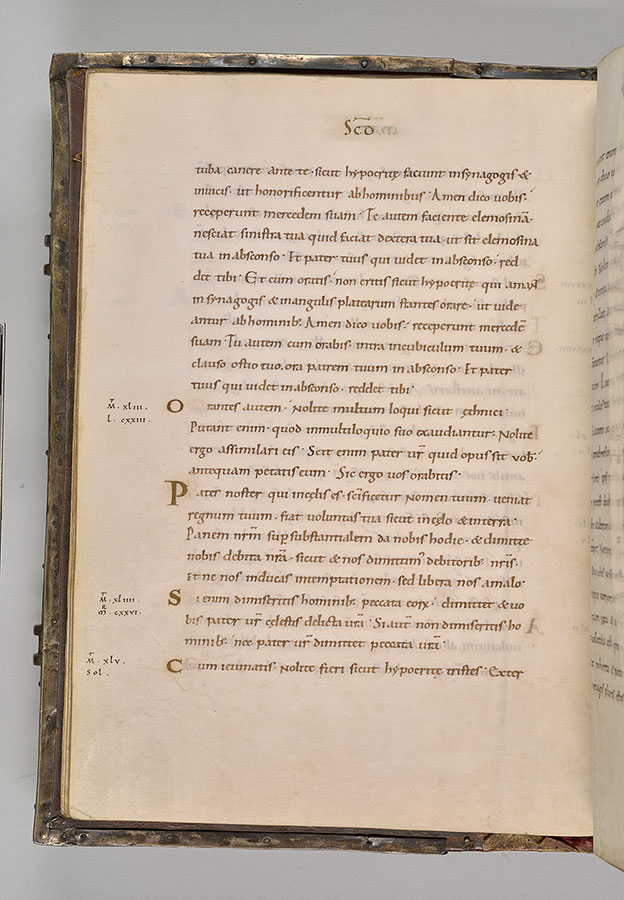 Scd̄
tuba canere ante te · sicut hypocritę faciunt in synagogis &
in uicis · ut honorificentur ab hominibus · Amen dico uobis ·
receperunt mercedem suam · Te autem faciente elemosinā ·
nesciat sinistra tua quid faciat dextera tua · ut sit elemosina
tua in absconso · Et pater tuus qui uidet in absconso · red
det tibi · Et cum oratis · non eritis sicut hypocritę qui amant
in synagogis & in angulis platearum stantes orare · ut uide
antur ab hominib; Amen dico uobis · receperunt mercedē
suam · Tu autem cum orabis · intra in cubiculum tuum · &
clauso ostio tuo, ora patrem tuum in absconso · Et pater
tuus qui uidet in absconso · reddet tibi ·
M̄ · xliii ·
L · cxxiii ·
Orantes autem · Nolite multum loqui sicut ęthnici ·
Putant enim · quod in multiloquio suo exaudiantur · Nolite
ergo assimilari eis · Scit enim pater ur̄ quid opus sit uob; ·
antequam petatis eum · Sic ergo uos orabitis ·
Pater noster qui in cęlis es · sc̄ificetur Nomen tuum · ueniat
regnum tuum · fiat uoluntas tua sicut in cęlo & in terra ·
Panem nr̄m sup̄substantialem da nobis hodie · & dimitte
nobis debita nr̄a · sicut & nos dimittim' debitorib; nr̄is ·
Et ne nos inducas in temptationem · sed libera nos a malo ·
M̄ · xliiii ·
M̄ · cxxvi ·
Si enim dimiseritis hominib; peccata eorꝝ · dimittet & uo
bis pater ur̄ cęlestis delicta ur̄a · Si aut̄ non dimiseritis ho
minib; · nec pater ur̄ dimittet peccata ur̄a ·
M̄ · xlv ·
Sol ·
Cum ieiunatis · Nolite fieri sicut hypocritę tristes · Exter